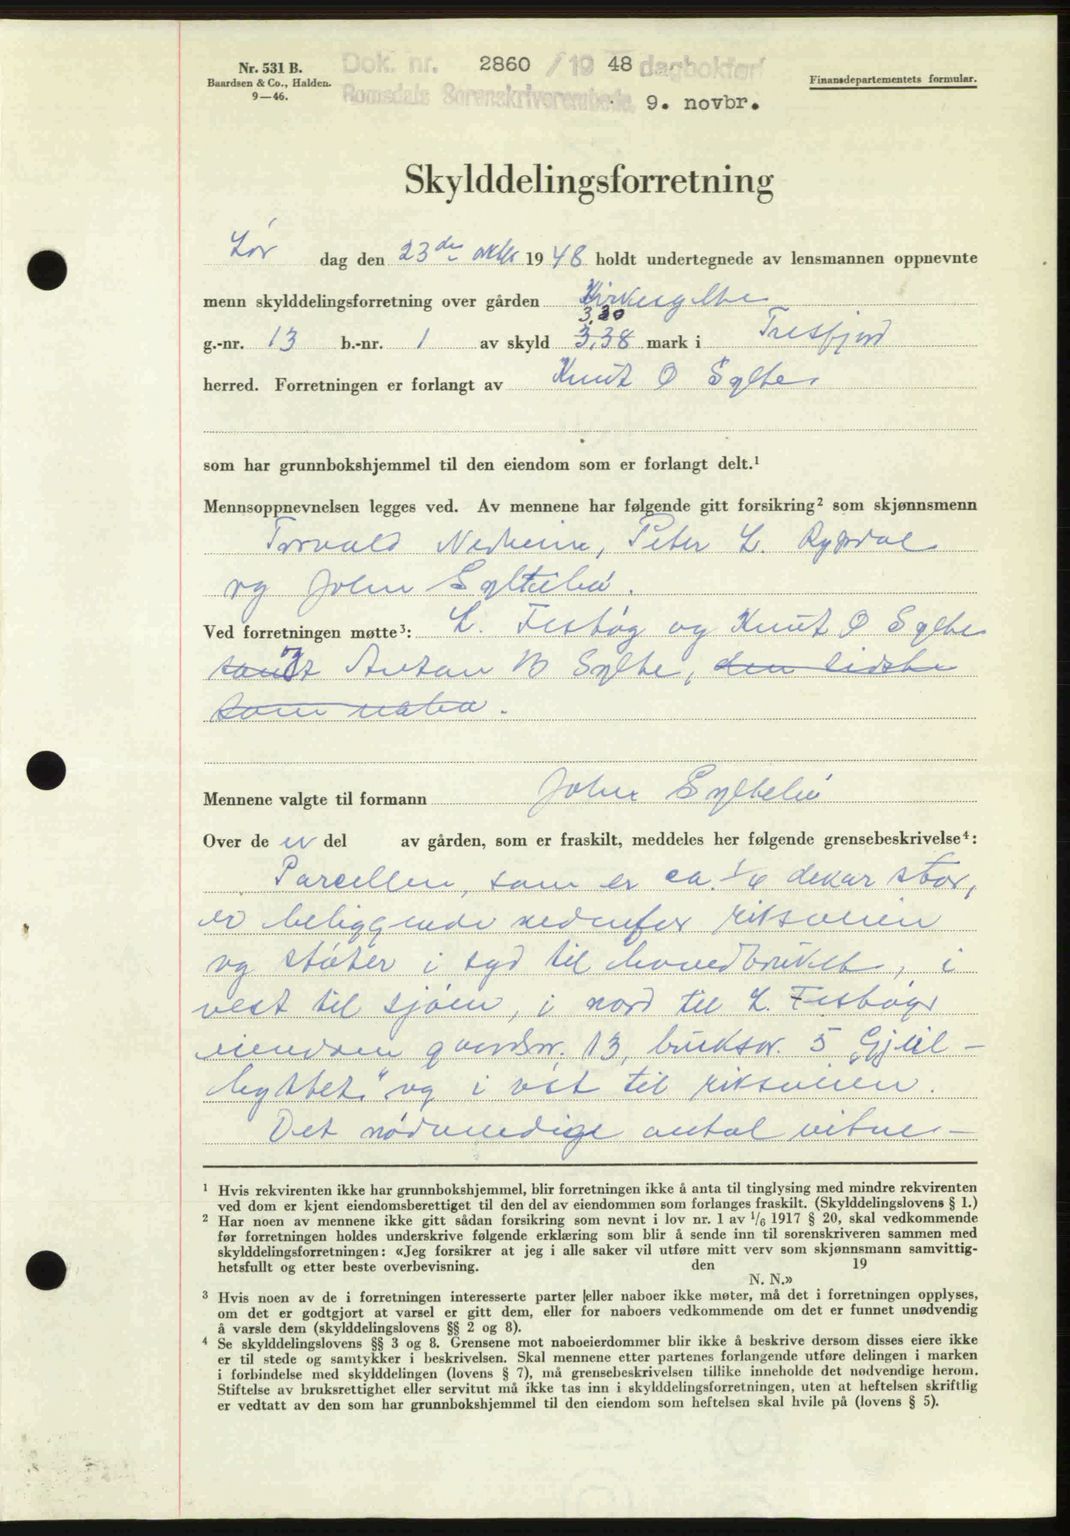 Nr. 531 B.
Baardsen & Co., Halden.
9—46.
Dok. nr. 2860 / 19 48 dagbokført
Romsdals Sorenskriverembede. 9. novbr.
Finansdepartementets formular.
Skylddelingsforretning
Lør dag den 23de oktbr 1948 holdt undertegnede av lensmannen oppnevnte
menn skylddelingsforretning over gården Kirkesylte
3,30
g.-nr. 13 b.-nr. 1 av skyld 3,38 mark i Tresfjord
herred. Forretningen er forlangt av Knut O Sylte
som har grunnbokshjemmel til den eiendom som er forlangt delt.¹
Mennsoppnevnelsen legges ved. Av mennene har følgende gitt forsikring² som skjønnsmenn
Torvald Nerheim, Peter L. Rypdal
og John Syltebø.
Ved forretningen møtte³: L. Festøg og Knut O Sylte
samt og Anton B Sylte, den sidste
som nabo.
Mennene valgte til formann John Syltebø
Over de er del av gården, som er fraskilt, meddeles her følgende grensebeskrivelse⁴:
Parcellen, som er ca. 1/4 dekar stor,
er beliggende nedenfor riksveien
og støter i syd til hovedbruket, i
vest til sjøen, i nord til L. Festøgs
eiendom gaardsnr. 13, bruksnr. 5 „Gjel-
byttet" og i øst til riksveien.
Det nødvendige antal vitne-
¹ Hvis rekvirenten ikke har grunnbokshjemmel, blir forretningen ikke å anta til tinglysing med mindre rekvirenten
ved dom er kjent eiendomsberettiget til den del av eiendommen som forlanges fraskilt. (Skylddelingslovens § 1.)
² Har noen av mennene ikke gitt sådan forsikring som nevnt i lov nr. 1 av 1/6 1917 § 20, skal vedkommende
før forretningen holdes underskrive følgende erklæring som blir å sende inn til sorenskriveren sammen med
skylddelingsforretningen: «Jeg forsikrer at jeg i alle saker vil utføre mitt verv som skjønnsmann samvittig-
hetsfullt og etter beste overbevisning. den 19
N. N.»
³ Hvis noen av de i forretningen interesserte parter eller naboer ikke møter, må det i forretningen opplyses,
om det er godtgjort at varsel er gitt dem, eller for naboers vedkommende om det er funnet unødvendig
å varsle dem (skylddelingslovens §§ 2 og 8).
⁴ Se skylddelingslovens §§ 3 og 8. Grensene mot naboeierdommer blir ikke å beskrive dersom disses eiere ikke
er til stede og samtykker i beskrivelsen. Skal mennene etter partenes forlangende utføre delingen i marken
i forbindelse med skylddelingen (lovens § 7), må grensebeskrivelsen tillike inneholde det nødvendige herom.
Stiftelse av bruksrettighet eller servitut må ikke tas inn i skylddelingsforretningen, uten at heftelsen skriftlig
er vedtatt av den som har grunnbokshjemmel til den eiendom som heftelsen skal hvile på (lovens § 5).